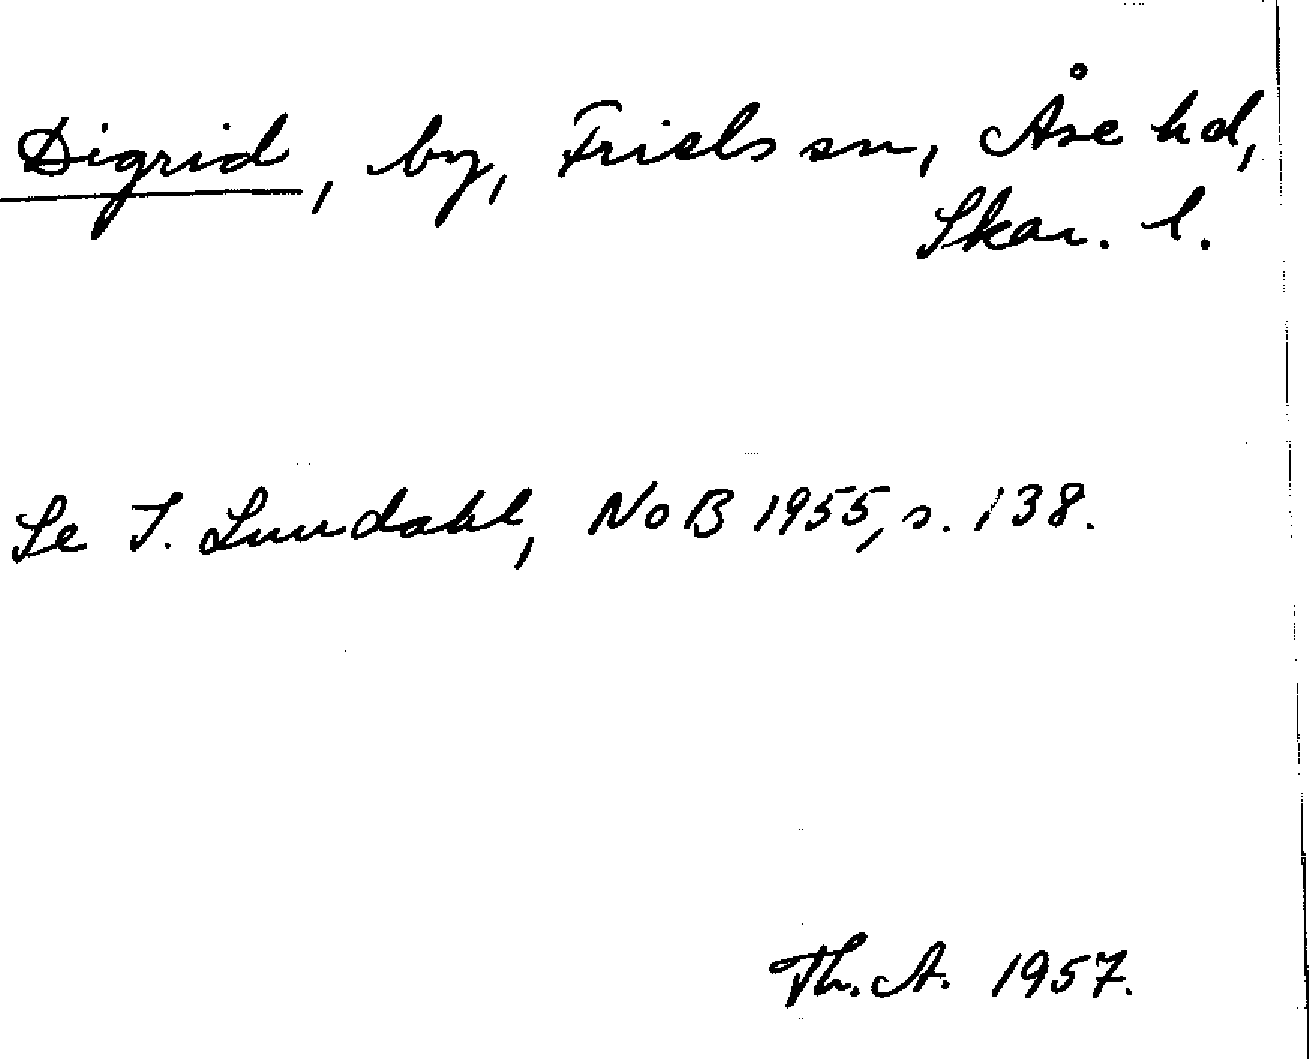 Digrid, by, Friels sn, Åse hd,
Skar. l.
Se I. Lundahl, NoB 1955, s. 138.
Th. A. 1957.